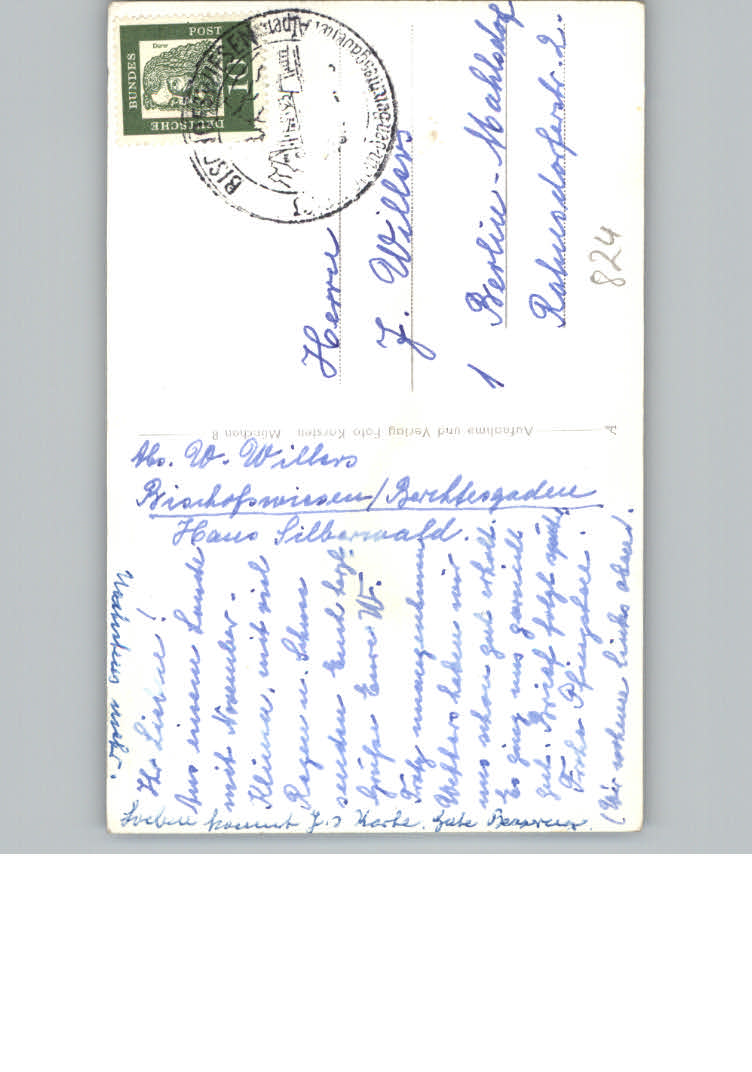 Abs. W. Willers
Bischofswiesen/Berchtesgaden
Haus Silberwald.
Ihr Lieben!
Aus einem Lande
mit November-
Klima, mit viel
Regen u. Schnee
senden Euch herzl.
Grüße Eure W.
Trotz unangenehmen
Wetters haben wir
uns schon gut erholt.
Es ging uns gesundh.
gut. Brief folgt später
Frohe Pfingsten.
(Wir wohnen links oben).
Soeben kommt J.s Karte. Gute Besserung.
mehr.
Aufnahme und Verlag Foto Karsten München 8
A
Herrn
J. Willers
1 Berlin-Mahlsdorf
Rahnsdorferstr. 2.
824
DEUTSCHE
BUNDES
POST
Dürer
10
BISCHOFSWIESEN